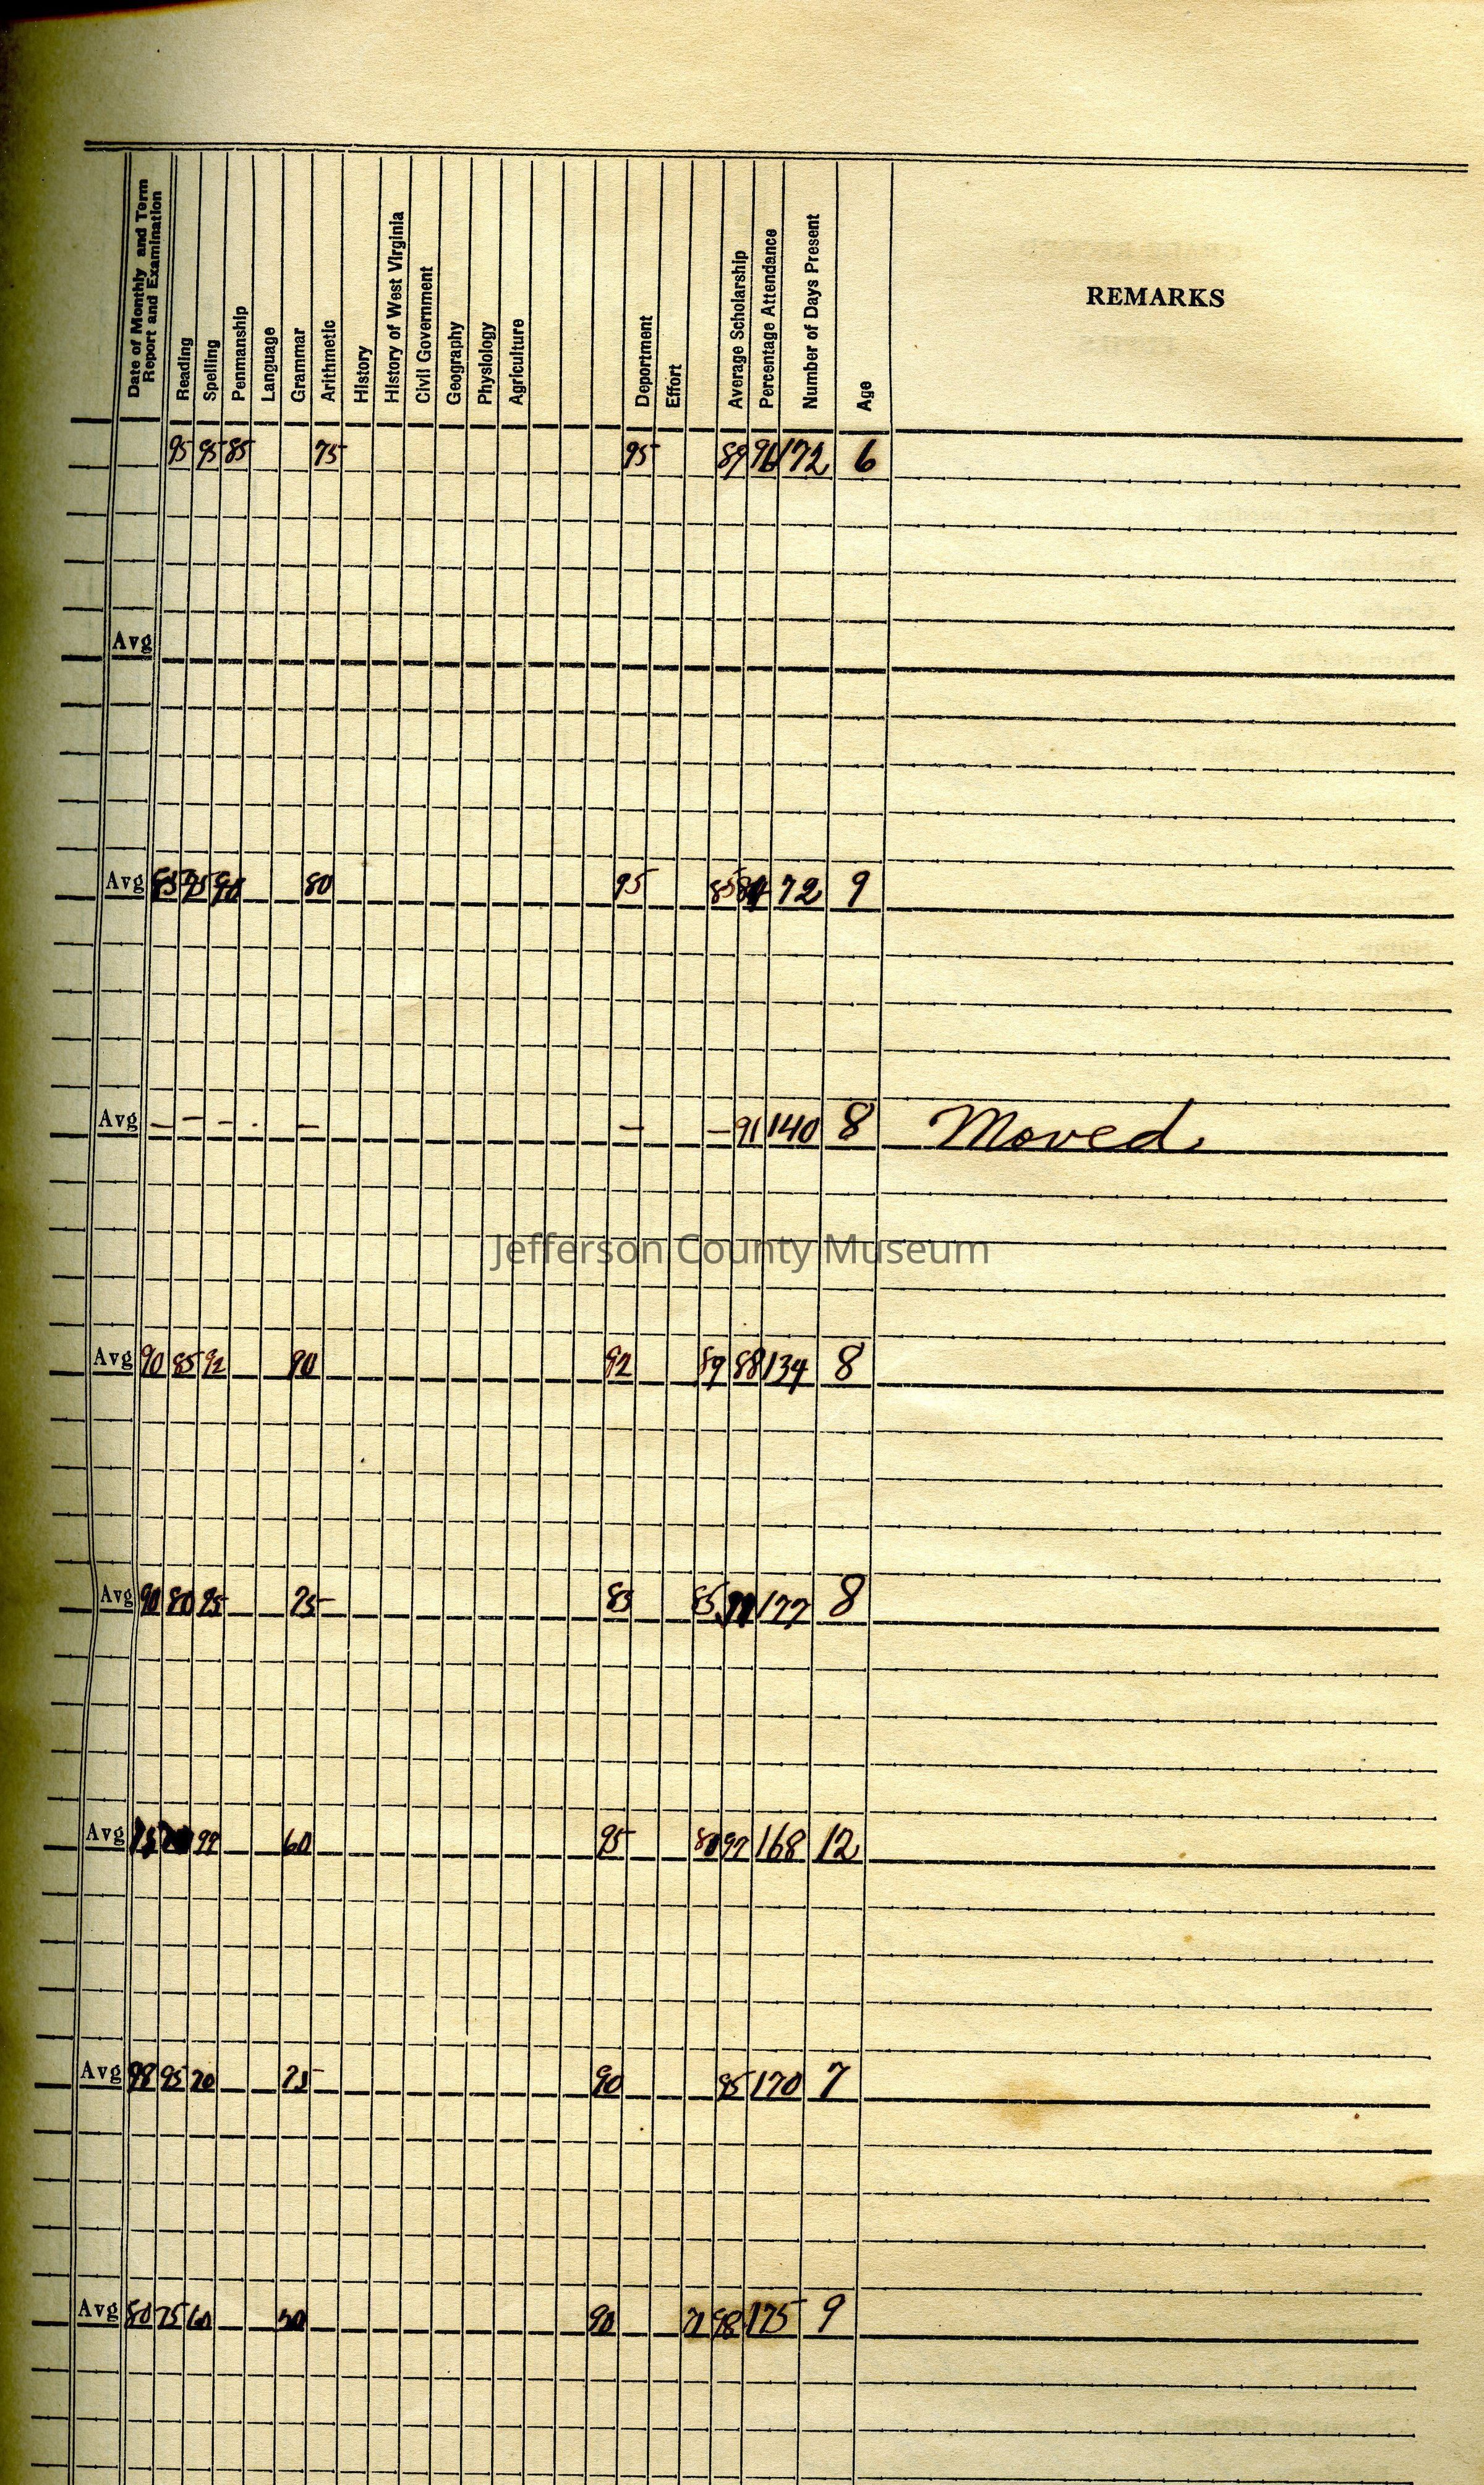 Date of Monthly and Term Report and Examination Reading Spelling Penmanship Language Grammar Arithmetic History History of West Virginia Civil Government Geography Physiology Agriculture Deportment Effort Average Scholarship Percentage Attendance Number of Days Present Age REMARKS
95 95 85 75 95 89 96 172 6
Avg
Avg 80 95 72 9
Avg — — — — — — 91 140 8 Moved
Jefferson County Museum
Avg 90 85 92 90 92 89 88 134 8
Avg 90 80 95 75 85 85 177 8
Avg 99 60 95 97 168 12
Avg 98 95 70 75 90 95 170 7
Avg 80 75 60 50 90 71 98 175 9